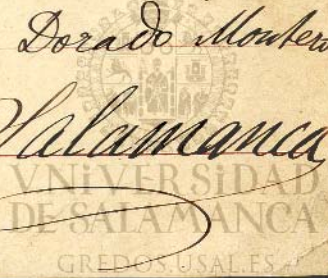 Dorado Montero
Salamanca
VNiVERSiDAD
DE SALAMANCA
GREDOS.USAL.ES